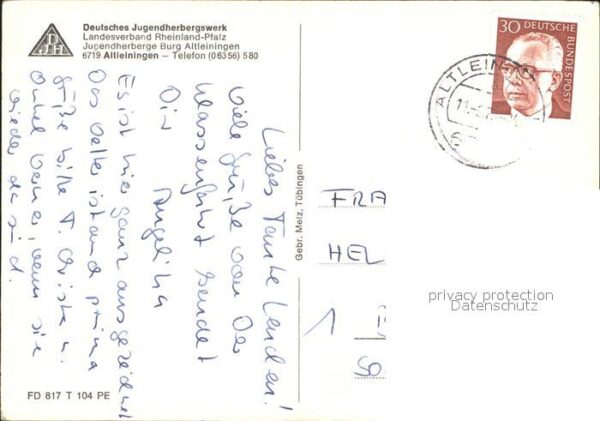 Deutsches Jugendherbergswerk
Landesverband Rheinland-Pfalz
Jugendherberge Burg Altleiningen
6719 Altleiningen – Telefon (06356) 580
DJH
30 DEUTSCHE BUNDESPOST
ALTLEIN
Liebes Tante Lenchen!
Viele Grüße von der
Klassenfahrt sendet
Dir
Angelika
Es ist hier ganz ausgezeichnet
Das Wetter ist auch prima
Grüße bitte T. Christa u.
Onkel wenn sie
wieder da sind.
Gebr. Metz, Tübingen
FRA
HEL
1
SO
privacy protection
Datenschutz
FD 817 T 104 PE